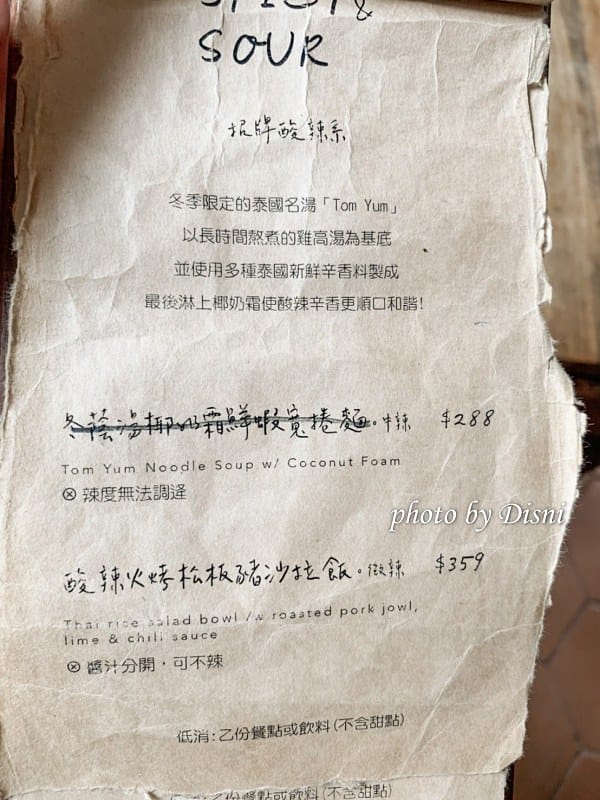 SPICY &
SOUR
招牌酸辣系
冬季限定的泰國名湯「Tom Yum」
以長時間熬煮的雞高湯為基底
並使用多種泰國新鮮辛香料製成
最後淋上椰奶霜使酸辣辛香更順口和諧!
冬蔭湯椰奶霜鮮蝦寬捲麵。中辣 $288
Tom Yum Noodle Soup w/ Coconut Foam
⊗ 辣度無法調逢
photo by Disni
酸辣火烤松板豬沙拉飯。微辣 $359
Thai rice salad bowl /w roasted pork jowl,
lime & chili sauce
⊗ 醬汁分開,可不辣
低消:乙份餐點或飲料(不含甜點)
低消:乙份餐點或飲料(不含甜點)